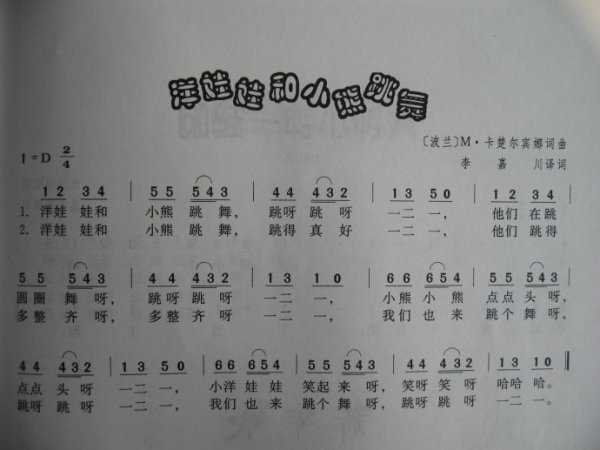 洋娃娃和小熊跳舞
〔波兰〕M·卡楚尔宾娜词曲
1=D 2/4
李嘉川译词
12 34 | 55 543 | 44 432 | 13 50 | 12 34 |
1. 洋娃 娃和 小熊 跳舞, 跳呀 跳呀 一二 一, 他们 在跳
2. 洋娃 娃和 小熊 跳舞, 跳得 真好 一二 一, 他们 跳得
55 543 | 44 432 | 13 10 | 66 654 | 55 543 |
圆圈 舞呀, 跳呀 跳呀 一二 一, 小熊 小熊 点点 头呀,
多整 齐呀, 多整 齐呀 一二 一, 我们 也来 跳个 舞呀,
44 432 | 13 50 | 66 654 | 55 543 | 44 432 | 13 10 ‖
点点 头呀 一二 一, 小洋 娃娃 笑起 来呀, 笑呀 笑呀 哈哈 哈。
跳呀 跳呀 一二 一, 我们 也来 跳个 舞呀, 跳呀 跳呀 一二 一。